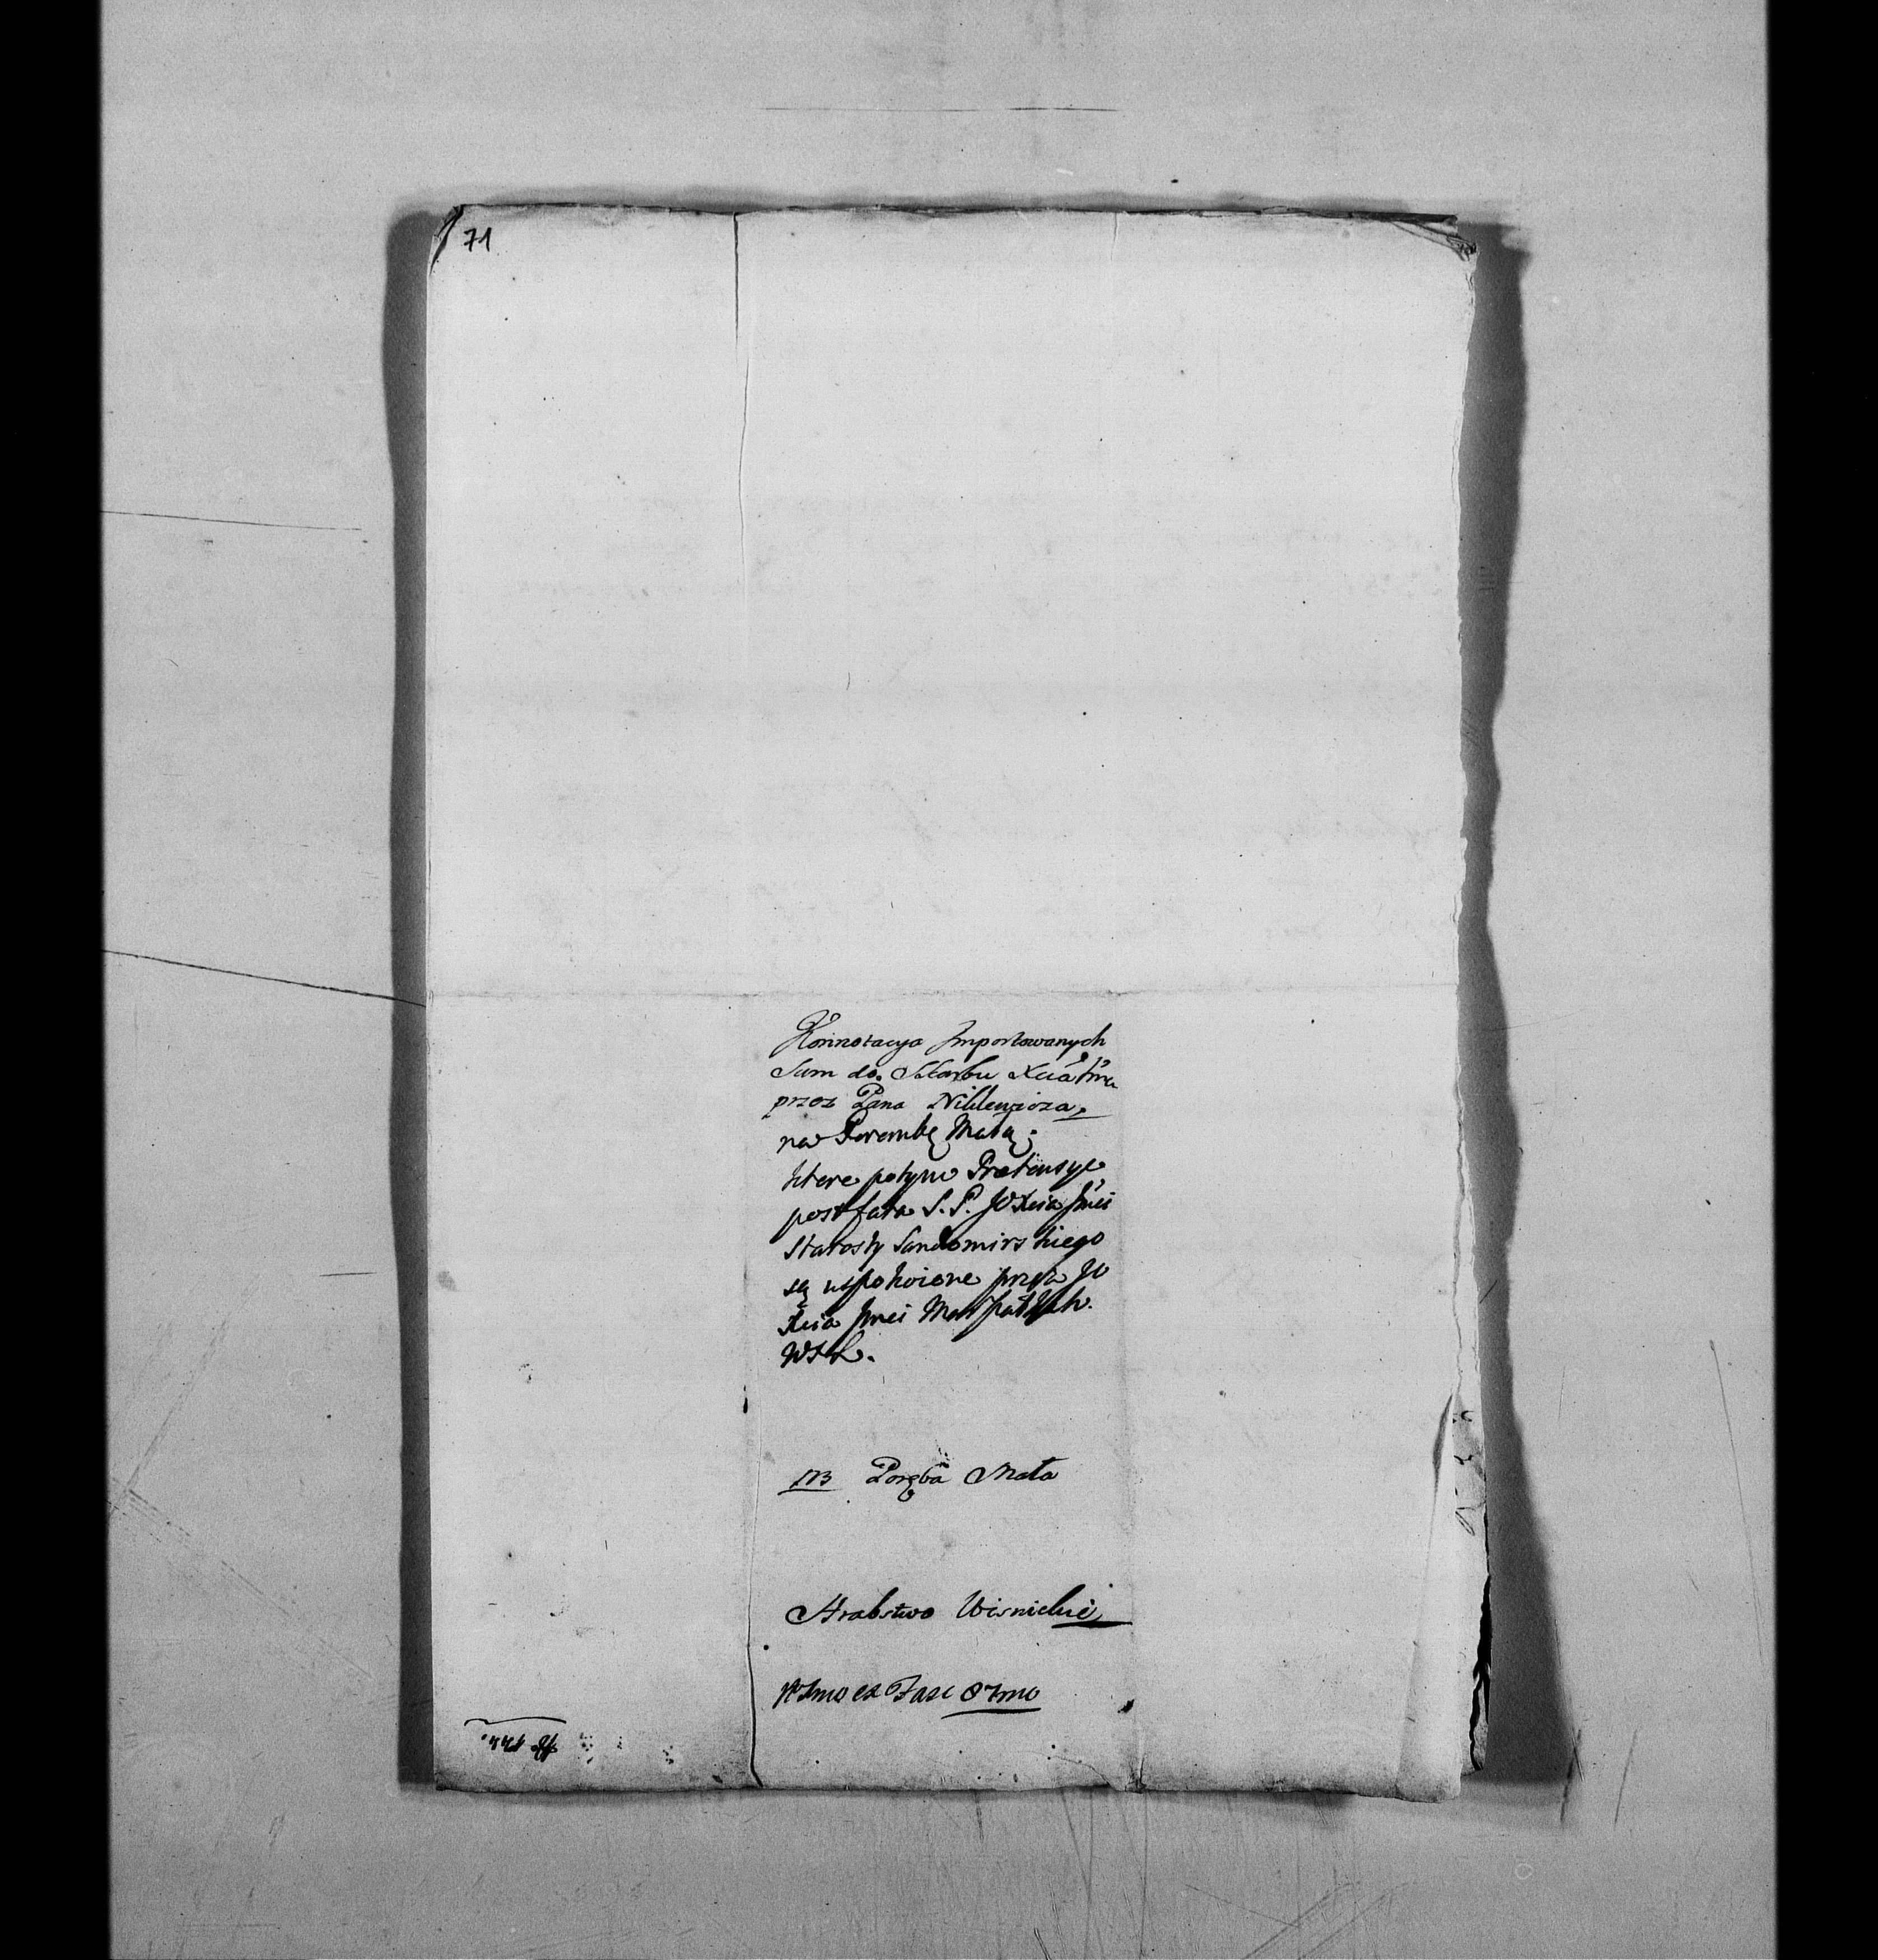 71
Konnotacya Importowanych
Sum do Skarbu Xcia Jmci
przez Pana
na Porembę Małą;
ktore potym Prætensye
post fata S. P. JO Xcia Jmci
Starosty Sandomirskiego
są uspokoione przez JO
Xcia Jmci
WXL.
173 Poręba Mała
Hrabstwo Wisnickie
ex Fasc 87mo